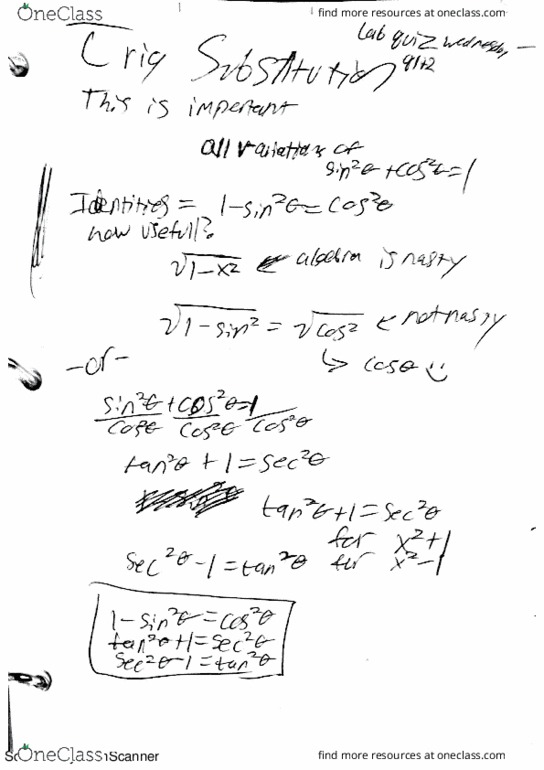 OneClass
find more resources at oneclass.com
Lab quiz wednesday
q1+2
Trig Substitution
This is important
all variations of
sin²θ + cos²θ = 1
Identities = 1 - sin²θ = cos²θ
how usefull?
√1-x² ← algebra is nasty
√1-sin² = √cos² ← not nassy
↳ cosθ
-or-
sin²θ + cos²θ = 1
cosθ cos²θ cos²θ
tan²θ + 1 = sec²θ
tan²θ + 1 = sec²θ
for x²+1
sec²θ - 1 = tan²θ for x²-1
1 - sin²θ = cos²θ
tan²θ + 1 = sec²θ
sec²θ - 1 = tan²θ
OneClass
Scanner
find more resources at oneclass.com